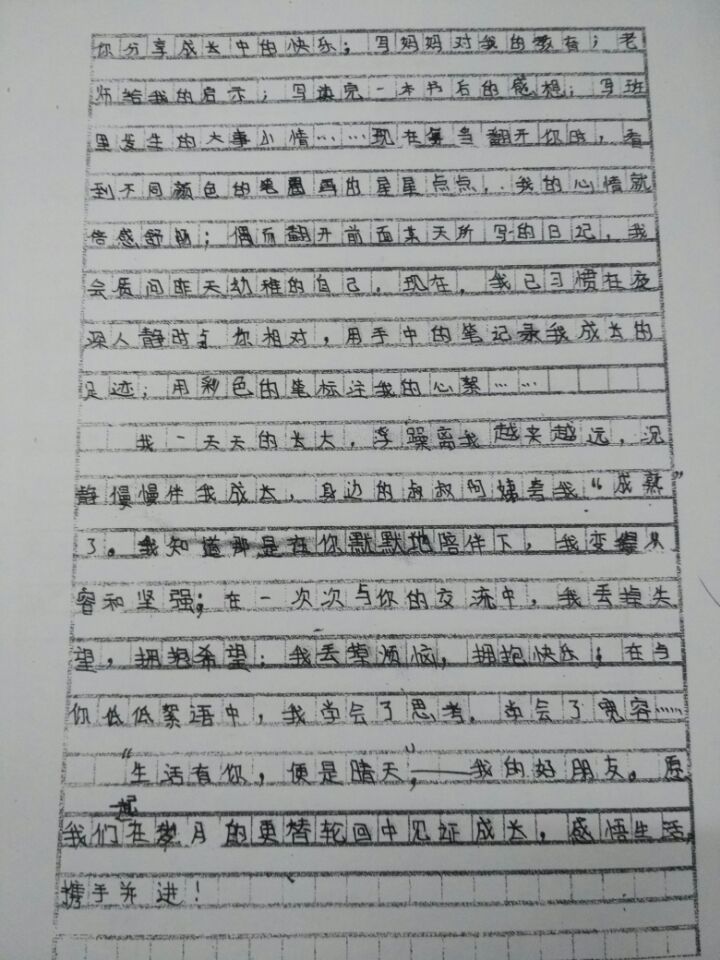 你分享成长中的快乐；写妈妈对我的教育；老
师给我的启示；写读完一本书后的感想；写班
里发生的大事小情……现在每当翻开你时，看
到不同颜色的笔圈画的星星点点，我的心情就
倍感舒畅；偶而翻开前面某天所写的日记，我
会质问昨天幼稚的自己。现在，我已习惯在夜
深人静时与你相对，用手中的笔记录我成长的
足迹；用彩色的笔标注我的心絮……
我一天天的长大，浮躁离我越来越远，沉
静慢慢伴我成长，身边的叔叔阿姨夸我“成熟”
了。我知道那是在你默默地陪伴下，我变得从
容和坚强；在一次次与你的交流中，我丢掉失
望，拥抱希望；我丢掉烦恼，拥抱快乐；在与
你低低絮语中，我学会了思考，学会了宽容……
“生活有你，便是晴天”，——我的好朋友。愿
我们一起在岁月的更替轮回中见证成长，感悟生活，
携手并进！